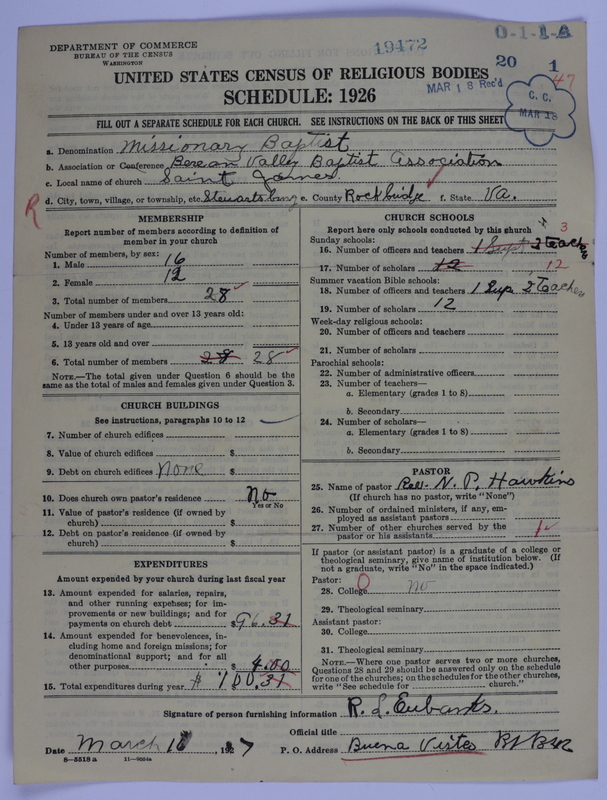 DEPARTMENT OF COMMERCE
BUREAU OF THE CENSUS
WASHINGTON
19472
0-1-1-A
20
1
47
UNITED STATES CENSUS OF RELIGIOUS BODIES
MAR 18 Rec'd
C. C.
MAR 18
SCHEDULE: 1926
FILL OUT A SEPARATE SCHEDULE FOR EACH CHURCH. SEE INSTRUCTIONS ON THE BACK OF THIS SHEET
a. Denomination Missionary Baptist
b. Association or Conference Berean Valley Baptist Association
c. Local name of church Saint James
R
d. City, town, village, or township, etc. e. County Rockbridge f. State Va.
MEMBERSHIP
Report number of members according to definition of
member in your church
Number of members, by sex:
1. Male 16
2. Female 12
3. Total number of members 28
Number of members under and over 13 years old:
4. Under 13 years of age
5. 13 years old and over
6. Total number of members 28 28
NOTE.—The total given under Question 6 should be the
same as the total of males and females given under Question 3.
CHURCH BUILDINGS
See instructions, paragraphs 10 to 12
7. Number of church edifices
8. Value of church edifices $
9. Debt on church edifices None
10. Does church own pastor's residence No
Yes or No
11. Value of pastor's residence (if owned by
church) $
12. Debt on pastor's residence (if owned by
church) $
EXPENDITURES
Amount expended by your church during last fiscal year
13. Amount expended for salaries, repairs,
and other running expenses; for im-
provements or new buildings; and for
payments on church debt $96.31
14. Amount expended for benevolences, in-
cluding home and foreign missions; for
denominational support; and for all
other purposes $ 4.00
15. Total expenditures during year $ 100.31
CHURCH SCHOOLS
Report here only schools conducted by this church
Sunday schools: 3
16. Number of officers and teachers 1 Supt 2 Teachers
17. Number of scholars 12 12
Summer vacation Bible schools:
18. Number of officers and teachers 1 Sup 2 Teacher
19. Number of scholars 12
Week-day religious schools:
20. Number of officers and teachers
21. Number of scholars
Parochial schools:
22. Number of administrative officers
23. Number of teachers—
a. Elementary (grades 1 to 8)
b. Secondary
24. Number of scholars—
a. Elementary (grades 1 to 8)
b. Secondary
PASTOR
25. Name of pastor N. P. Hawkins
(If church has no pastor, write "None")
26. Number of ordained ministers, if any, em-
ployed as assistant pastors
27. Number of other churches served by the
pastor or his assistants 1
If pastor (or assistant pastor) is a graduate of a college or
theological seminary, give name of institution below. (If
not a graduate, write "No" in the space indicated.)
Pastor: 0
28. College No
29. Theological seminary
Assistant pastor:
30. College
31. Theological seminary
NOTE.—Where one pastor serves two or more churches,
Questions 28 and 29 should be answered only on the schedule
for one of the churches; on the schedules for the other churches,
write "See schedule for church."
Signature of person furnishing information R. L. Eubanks.
Official title
Date March 16, 1927 P. O. Address Buena Vista
8—5518 a 11—9554a